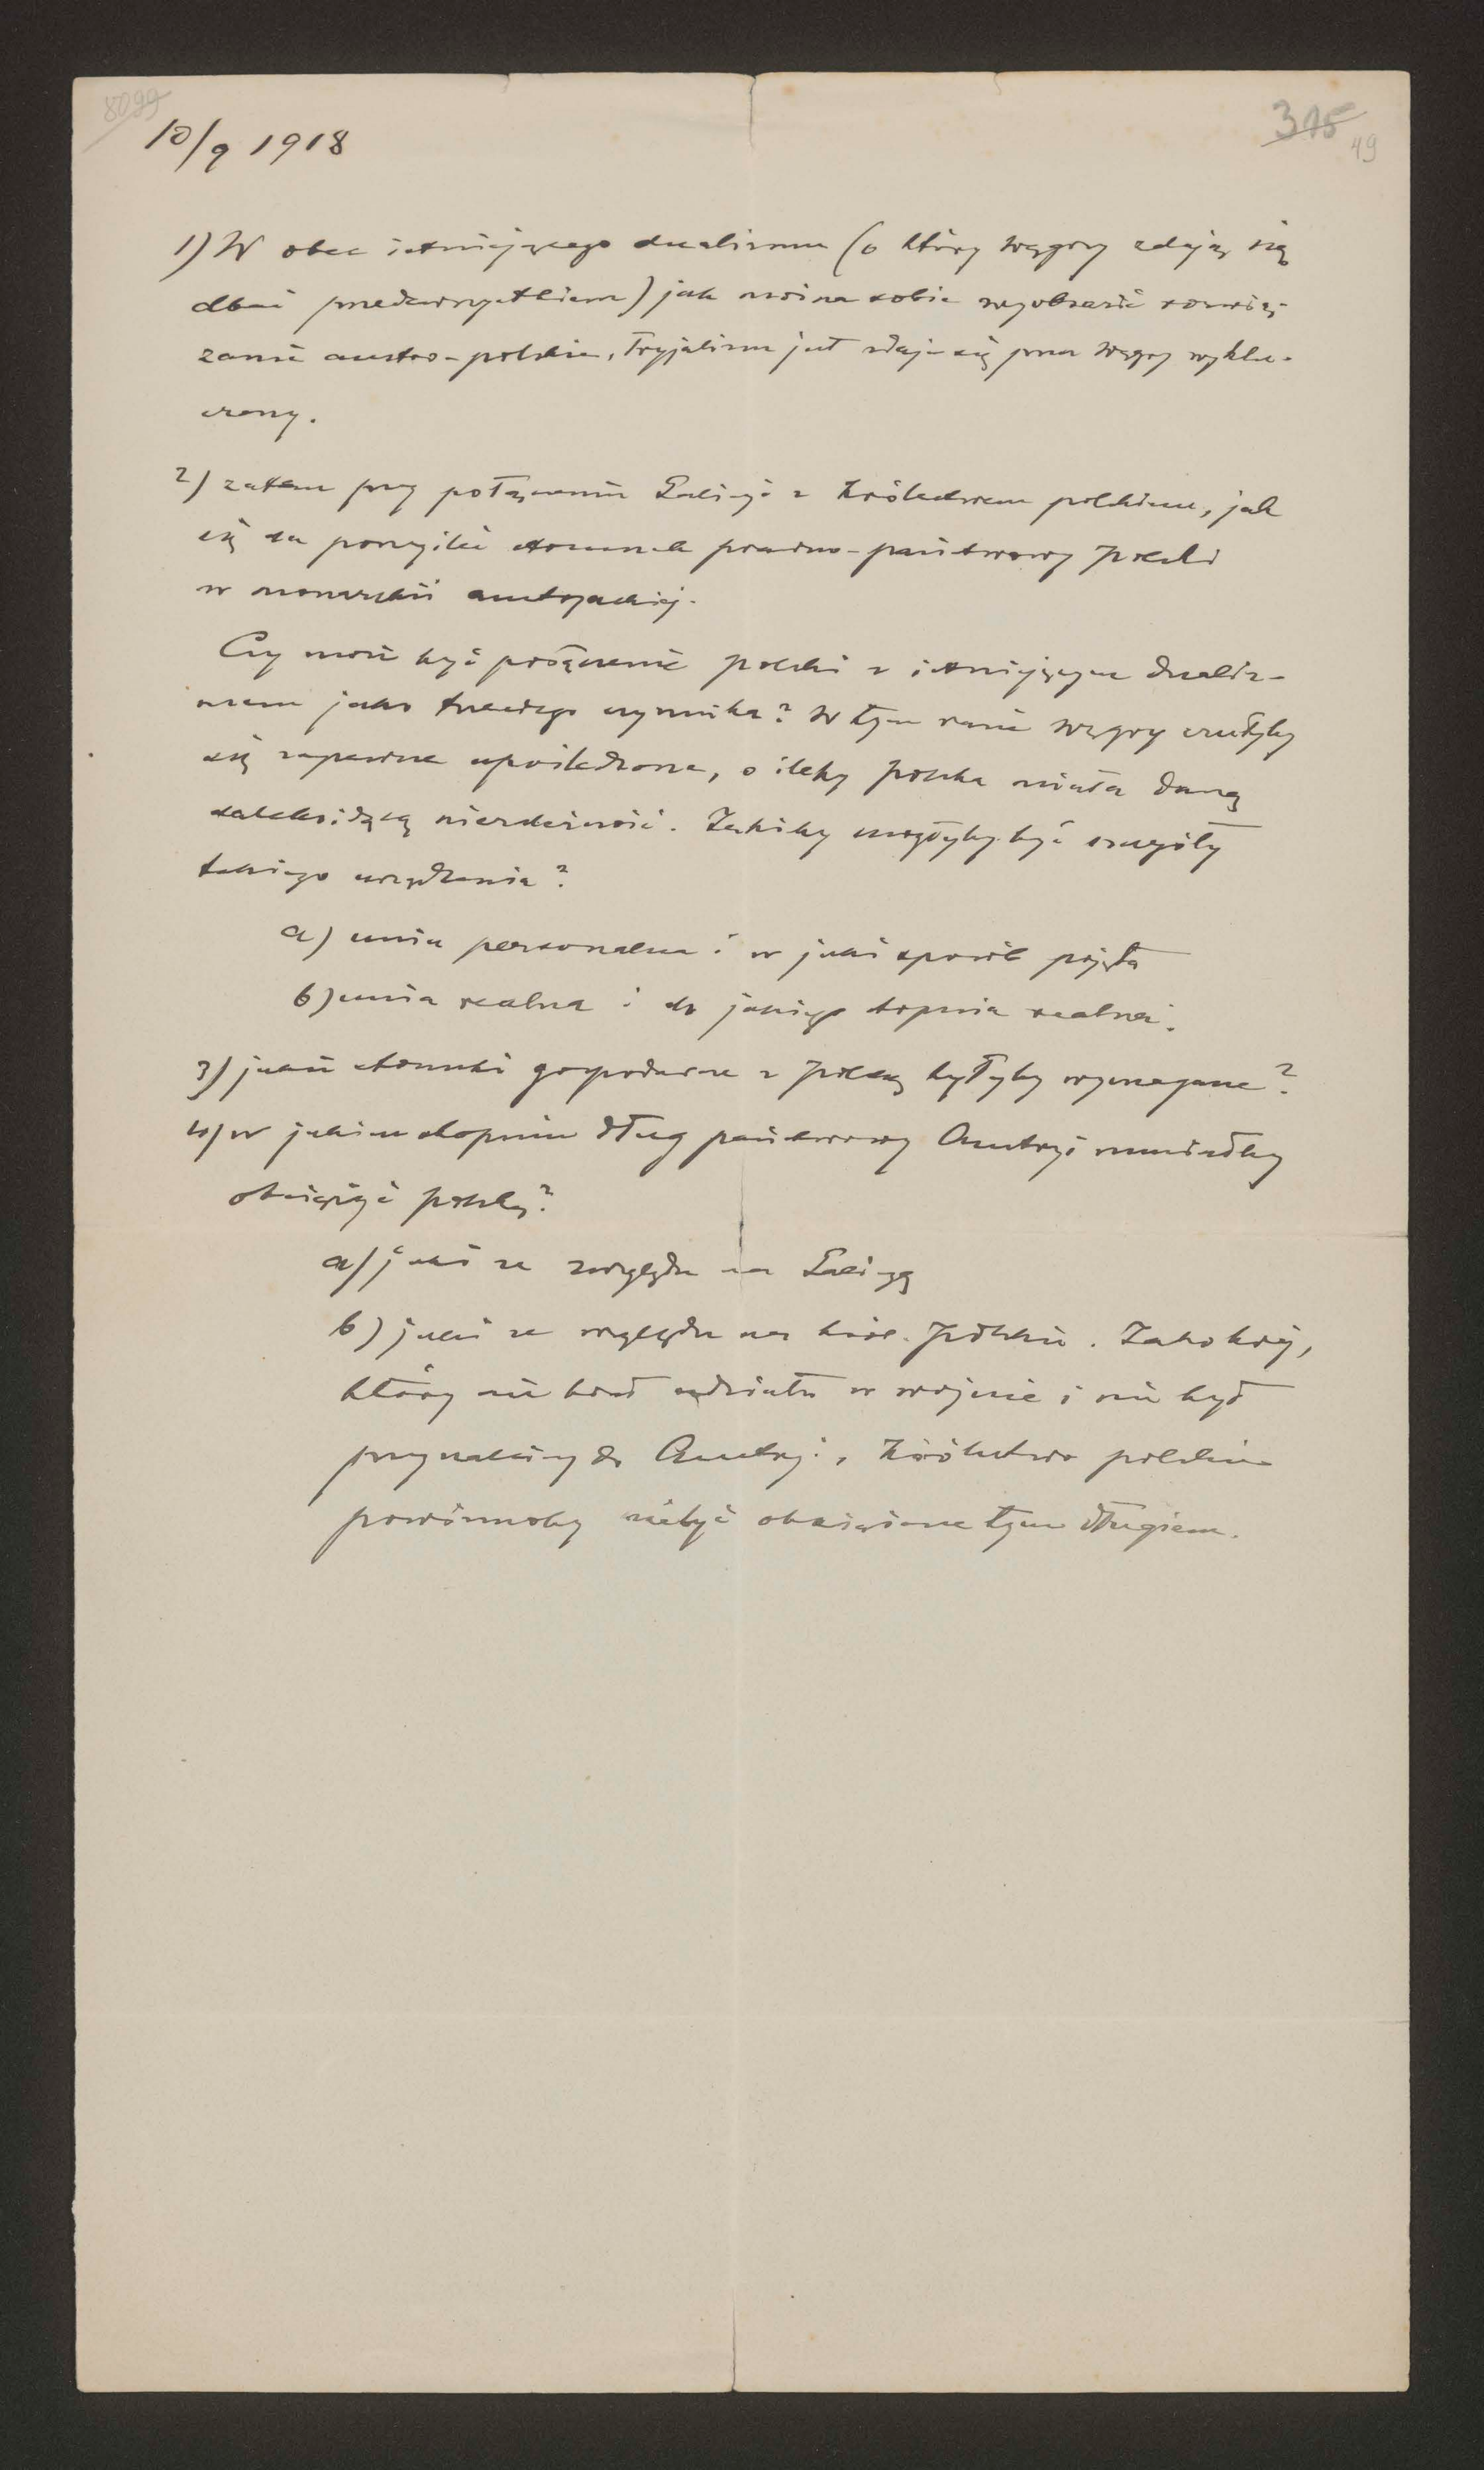 8099
315
49
10/9 1918
1) W obec istniejącego dualizmu (o który Węgry zdają się
dbać przedewszystkiem) jak można sobie wyobrazić rozwią-
zanie austro-polskie, Tryjalizm jest zdaje się przez Węgry wyklu-
czony.
2) zatem przy połączeniu Galicyi z Królestwem polskiem, jak
się da pomyśleć stosunek prawno-państwowy Polski
w monarchii austryackiej.
Czy może być połączenie Polski z istniejącym dualiz-
mem jako trzeciego czynnika? W tym razie Węgry czułyby
się zapewne upośledzone, o ileby Polska miała daną
dalekoidącą niezależność. Jakiby mogłyby być szczegóły
takiego urządzenia?
a) unia personalna i w jaki sposób pojęta
b) unia realna i do jakiego stopnia realna.
3) jakie stosunki gospodarcze z Polską byłyby wymagane?
4) w jakim stopniu dług państwowy Austryi musiałby
obciążyć Polskę?
a) jaki ze względu na Galicyę
b) jaki ze względu na król. Polskie. Jako kraj,
który nie brał udziału w wojnie i nie był
przynależny do Austryi, Królestwo polskie
powinnoby niebyć obciążone tym długiem.